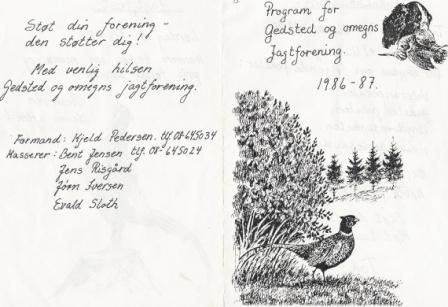 Støt din forening -
den støtter dig!
Med venlig hilsen
Gedsted og omegns jagtforening.
Formand: Kjeld Pedersen. tlf. 08-645034
Kasserer: Bent Jensen tlf. 08-645024
Jens Risgård
Jørn Iversen
Evald Sloth
Program for
Gedsted og omegns
Jagtforening.
1986-87.